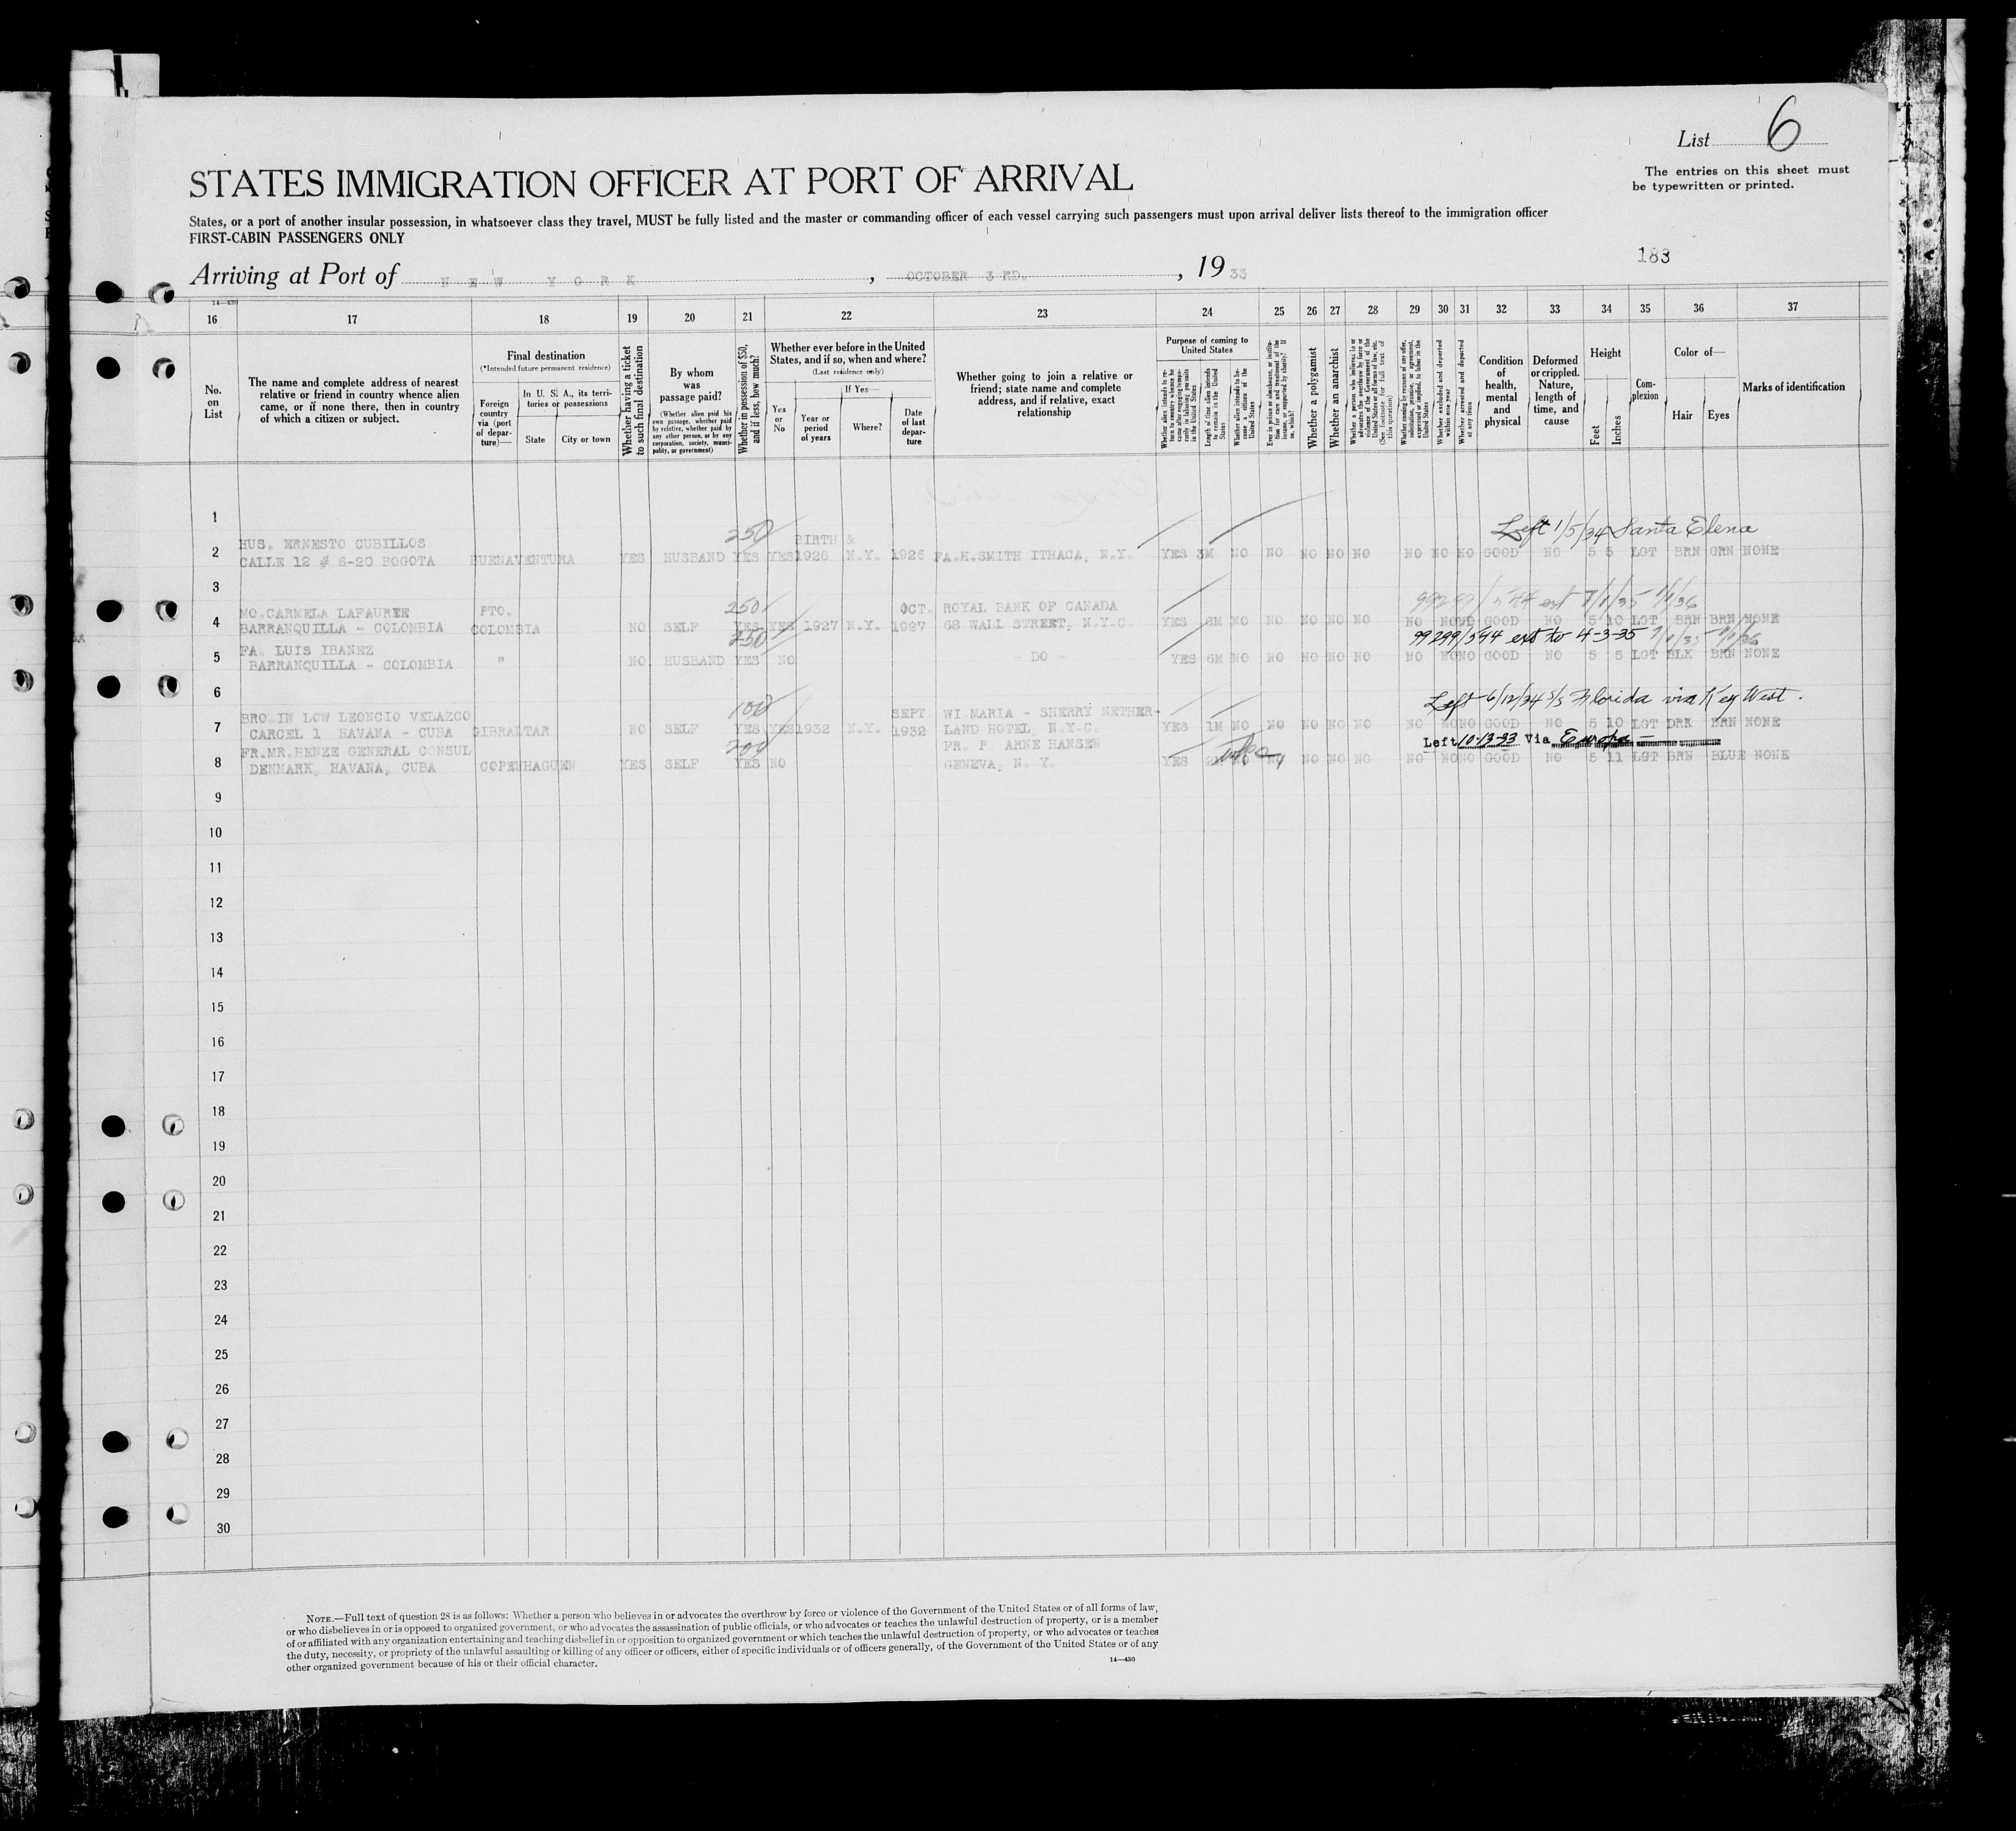 List 6
The entries on this sheet must
be typewritten or printed.
STATES IMMIGRATION OFFICER AT PORT OF ARRIVAL
States, or a port of another insular possession, in whatsoever class they travel, MUST be fully listed and the master or commanding officer of each vessel carrying such passengers must upon arrival deliver lists thereof to the immigration officer
FIRST-CABIN PASSENGERS ONLY
183
Arriving at Port of NEW YORK, OCTOBER 3 RD., 1933
14—430
16 17 18 19 20 21 22 23 24 25 26 27 28 29 30 31 32 33 34 35 36 37
No. on List
The name and complete address of nearest relative or friend in country whence alien came, or if none there, then in country of which a citizen or subject.
Final destination
(*Intended future permanent residence)
Foreign country via (port of departure)—
In U. S. A., its territories or possessions
State
City or town
Whether having a ticket to such final destination
By whom was passage paid?
(Whether alien paid his own passage, whether paid by relative, whether paid by any other person, or by any corporation, society, municipality, or government)
Whether in possession of $50, and if less, how much?
Whether ever before in the United States, and if so, when and where?
(Last residence only)
Yes or No
If Yes—
Year or period of years
Where?
Date of last departure
Whether going to join a relative or friend; state name and complete address, and if relative, exact relationship
Purpose of coming to United States
Whether alien intends to return to country whence he came after engaging temporarily in laboring pursuits in the United States
Length of time alien intends to remain in the United States
Whether alien intends to become a citizen of the United States
Ever in prison or almshouse, or institution for care and treatment of the insane, or supported by charity? If so, which?
Whether a polygamist
Whether an anarchist
Whether a person who believes in or advocates the overthrow by force or violence of the Government of the United States or all forms of law, etc. (See footnote for full text of this question)
Whether coming by reason of any offer, solicitation, promise, or agreement, expressed or implied, to labor in the United States
Whether excluded and deported within one year
Whether arrested and deported at any time
Condition of health, mental and physical
Deformed or crippled. Nature, length of time, and cause
Height
Feet
Inches
Complexion
Color of—
Hair
Eyes
Marks of identification
1
250 Left 1/5/34 Santa Elena
HUS. ERNESTO CUBILLOS BIRTH &
2 CALLE 12 # 6-20 BOGOTA BUENAVENTURA YES HUSBAND YES YES 1926 N.Y. 1926 FA.H.SMITH ITHACA, N.Y. YES 3M NO NO NO NO NO NO NO NO GOOD NO 5 5 LGT BRN GRN NONE
3
250 99299/544 ext 7/1/35 1/1/36
MO.CARMELA LAFAUREE PTO. OCT. ROYAL BANK OF CANADA
4 BARRANQUILLA - COLOMBIA COLOMBIA NO SELF YES YES 1927 N.Y. 1927 68 WALL STREET, N.Y.C. YES 6M NO NO NO NO NO NO NO NO GOOD NO 5 10 LGT BRN BRN NONE
250 99299/544 ext to 4-3-35 7/1/35 1/1/36
FA. LUIS IBANEZ
5 BARRANQUILLA - COLOMBIA " NO HUSBAND YES NO - DO - YES 6M NO NO NO NO NO NO NO NO GOOD NO 5 5 LGT BLK BRN NONE
6
100 Left 6/12/34 S/S Florida via Key West.
BRO.IN LOW LEONCIO VELAZCO SEPT. WI.MARIA - SHERRY NETHER-
7 CARCEL 1 HAVANA - CUBA GIBRALTAR NO SELF YES YES 1932 N.Y. 1932 LAND HOTEL, N.Y.C. YES 1M NO NO NO NO NO NO NO NO GOOD NO 5 10 LGT DRK BRN NONE
200 Left 10-13-33 Via Europa
FR.MR.HENZE GENERAL CONSUL FR. P. ARNE HANSEN
8 DENMARK, HAVANA, CUBA COPENHAGUEN YES SELF YES NO GENEVA, N. Y. YES NO NO NO NO NO NO NO NO GOOD NO 5 11 LGT BRN BLUE NONE
9
10
11
12
13
14
15
16
17
18
19
20
21
22
23
24
25
26
27
28
29
30
NOTE.—Full text of question 28 is as follows: Whether a person who believes in or advocates the overthrow by force or violence of the Government of the United States or of all forms of law,
or who disbelieves in or is opposed to organized government, or who advocates the assassination of public officials, or who advocates or teaches the unlawful destruction of property, or is a member
of or affiliated with any organization entertaining and teaching disbelief in or opposition to organized government or which teaches the unlawful destruction of property, or who advocates or teaches
the duty, necessity, or propriety of the unlawful assaulting or killing of any officer or officers, either of specific individuals or of officers generally, of the Government of the United States or of any
other organized government because of his or their official character.
14—430